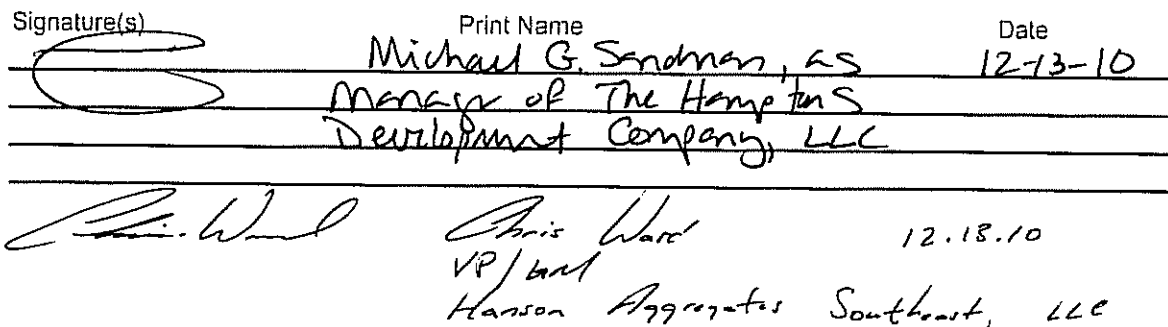 Signature(s) Print Name Date
Michael G. Sandman, as 12-13-10
Manager of The Hamptons
Development Company, LLC
Chris Ward Chris Ward 12.13.10
VP/GM
Hanson Aggregates Southeast, LLC